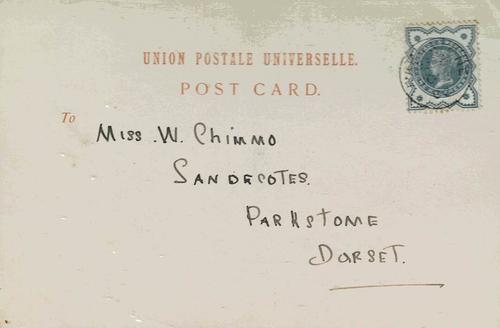 UNION POSTALE UNIVERSELLE.
POST CARD.
To
Miss .W. Chimmo
SANDECOTES.
PARKSTOME
DORSET.